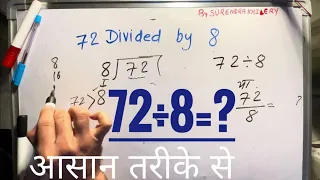 By SURENDRA KHILERY
72 Divided by 8
8
16
8)72
72÷8
I
72>8
या
72/8 = ?
72÷8=?
आसान तरीके से